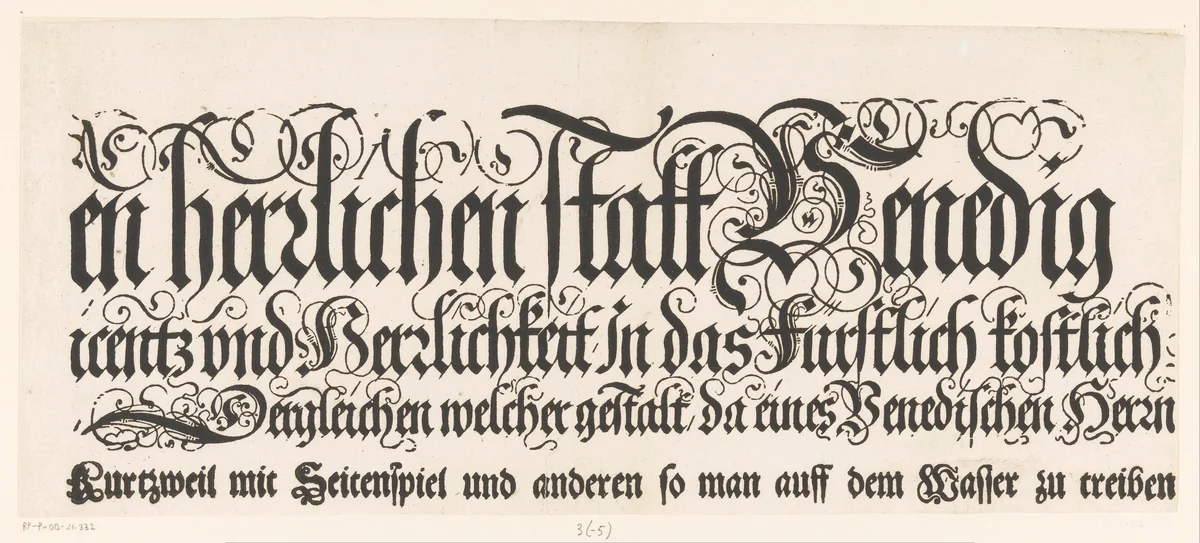 en herrlichen statt Venedig
icentz vnd Herrlichkeit / in das Furstlich kostlich
Dergleichen welcher gestalt / da eines Venedischen Herrn
Kurtzweil mit Seitenspiel und anderen so man auff dem Wasser zu treiben
RP-P-OB-21.332
3(-5)